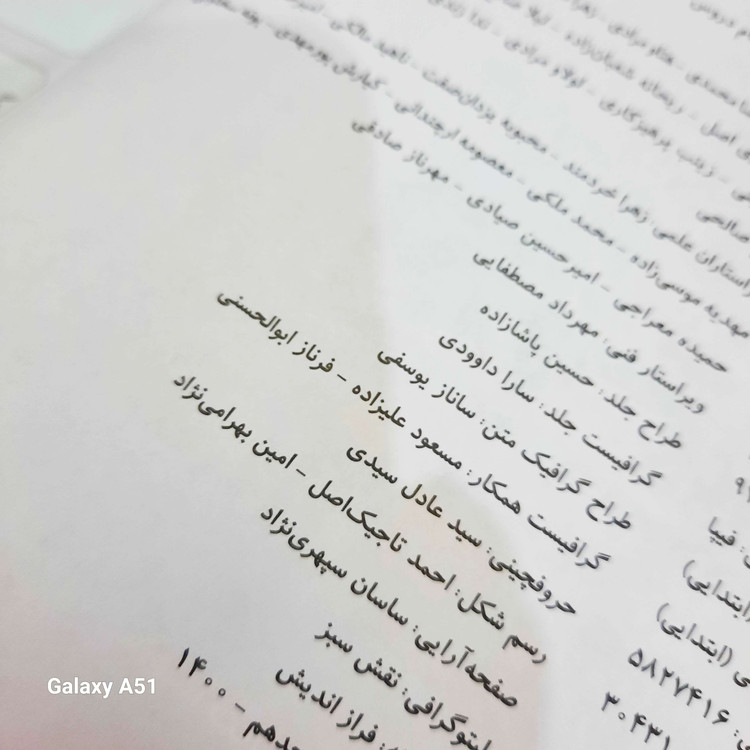 م دروس
محمدی - هنام مرادی - زهرا
ی اصل - ریحانه شعبان‌زاده - لیلا
ی - زینب پرهیزکاری - لولاو مرادی - ندا زندی
صالحی
راستاران علمی: زهرا خردمند - محبوبه یزدان‌صفت - ناهید مالکی - امیر
مهدیه موسی‌زاده - محمد ملکی - معصومه ارجندانی - کیارش پورمهدی
حمیده معراجی - امیرحسین صیادی - مهرناز صادقی
ویراستار فنی: مهرداد مصطفایی
طراح جلد: حسین پاشازاده
گرافیست جلد: سارا داوودی
طراح گرافیک متن: ساناز یوسفی
گرافیست همکار: مسعود علیزاده - فرناز ابوالحسنی
حروفچینی: سید عادل سیدی
رسم شکل: احمد تاجیک‌اصل - امین بهرامی‌نژاد
صفحه‌آرایی: ساسان سپهری‌نژاد
لیتوگرافی: نقش سبز
: فراز اندیش
جدهم - ۱۴۰۰
: فیپا
(ابتدایی)
ی (ابتدایی)
: ۵۸۲۷۴۱۶
۳۰۴۳۱
Galaxy A51